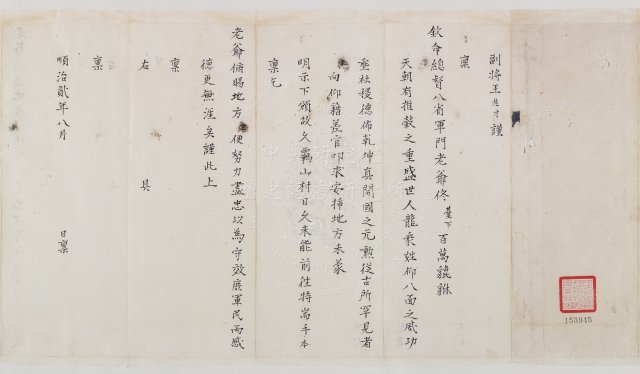 副將王進才謹
稟
欽命總督八省軍門老爺佟臺下百萬貔貅
天朝有推轂之重盛世人龍衆姓仰八面之威功
垂社稷德佈乾坤真開國之元勲從古所罕見者
向仰藉差官叩求安揷地方未蒙
明示下頒故久羈山村日久未能前往特耑手本
稟乞
老爺俯賜地方以便努力盡忠以為守效庶軍民两感
德更無涯矣謹此上
稟
右 具
稟
順治貳年八月 日稟
153945